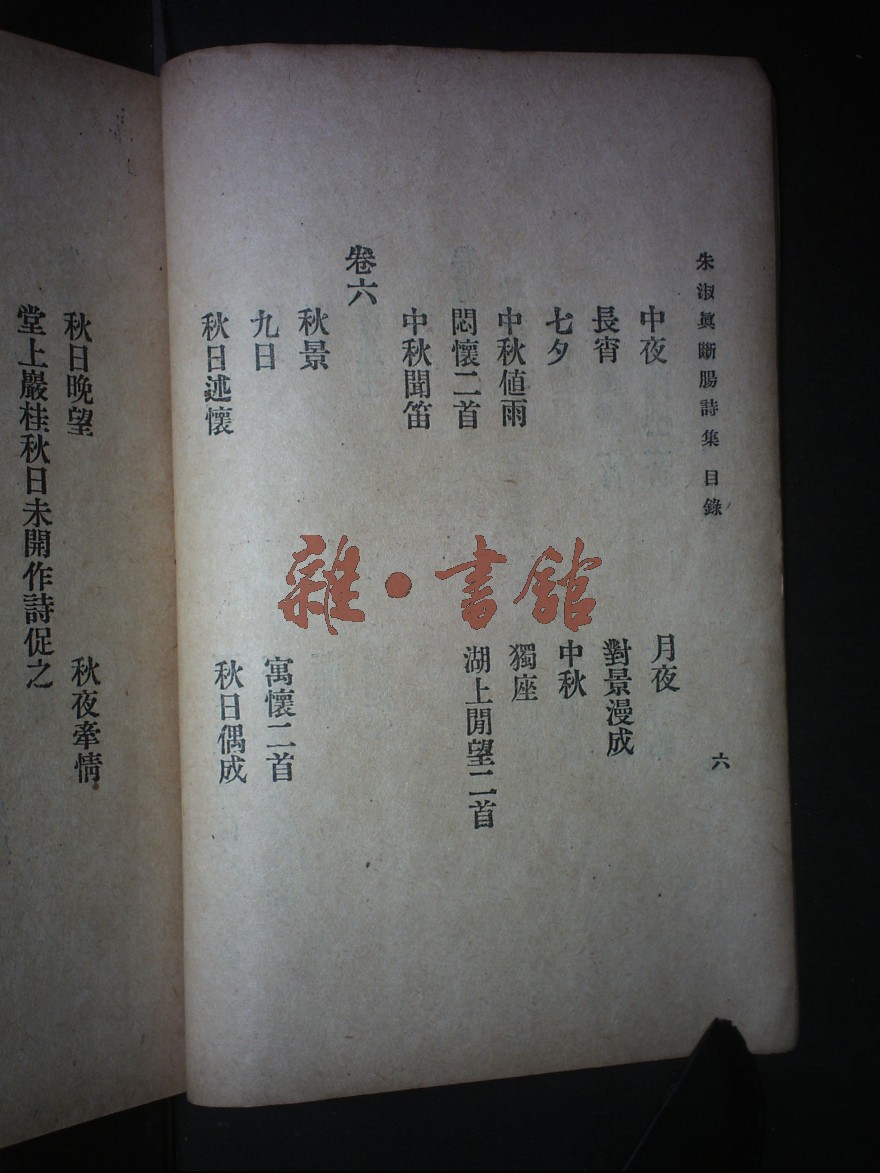 朱淑眞斷腸詩集 目錄 六
中夜 月夜
長宵 對景漫成
七夕 中秋
中秋値雨 獨座
悶懷二首 湖上閒望二首
中秋聞笛
卷六
秋景
九日 寓懷二首
秋日述懷 秋日偶成
秋日晚望 秋夜牽情
堂上巖桂秋日未開作詩促之
雜·書館